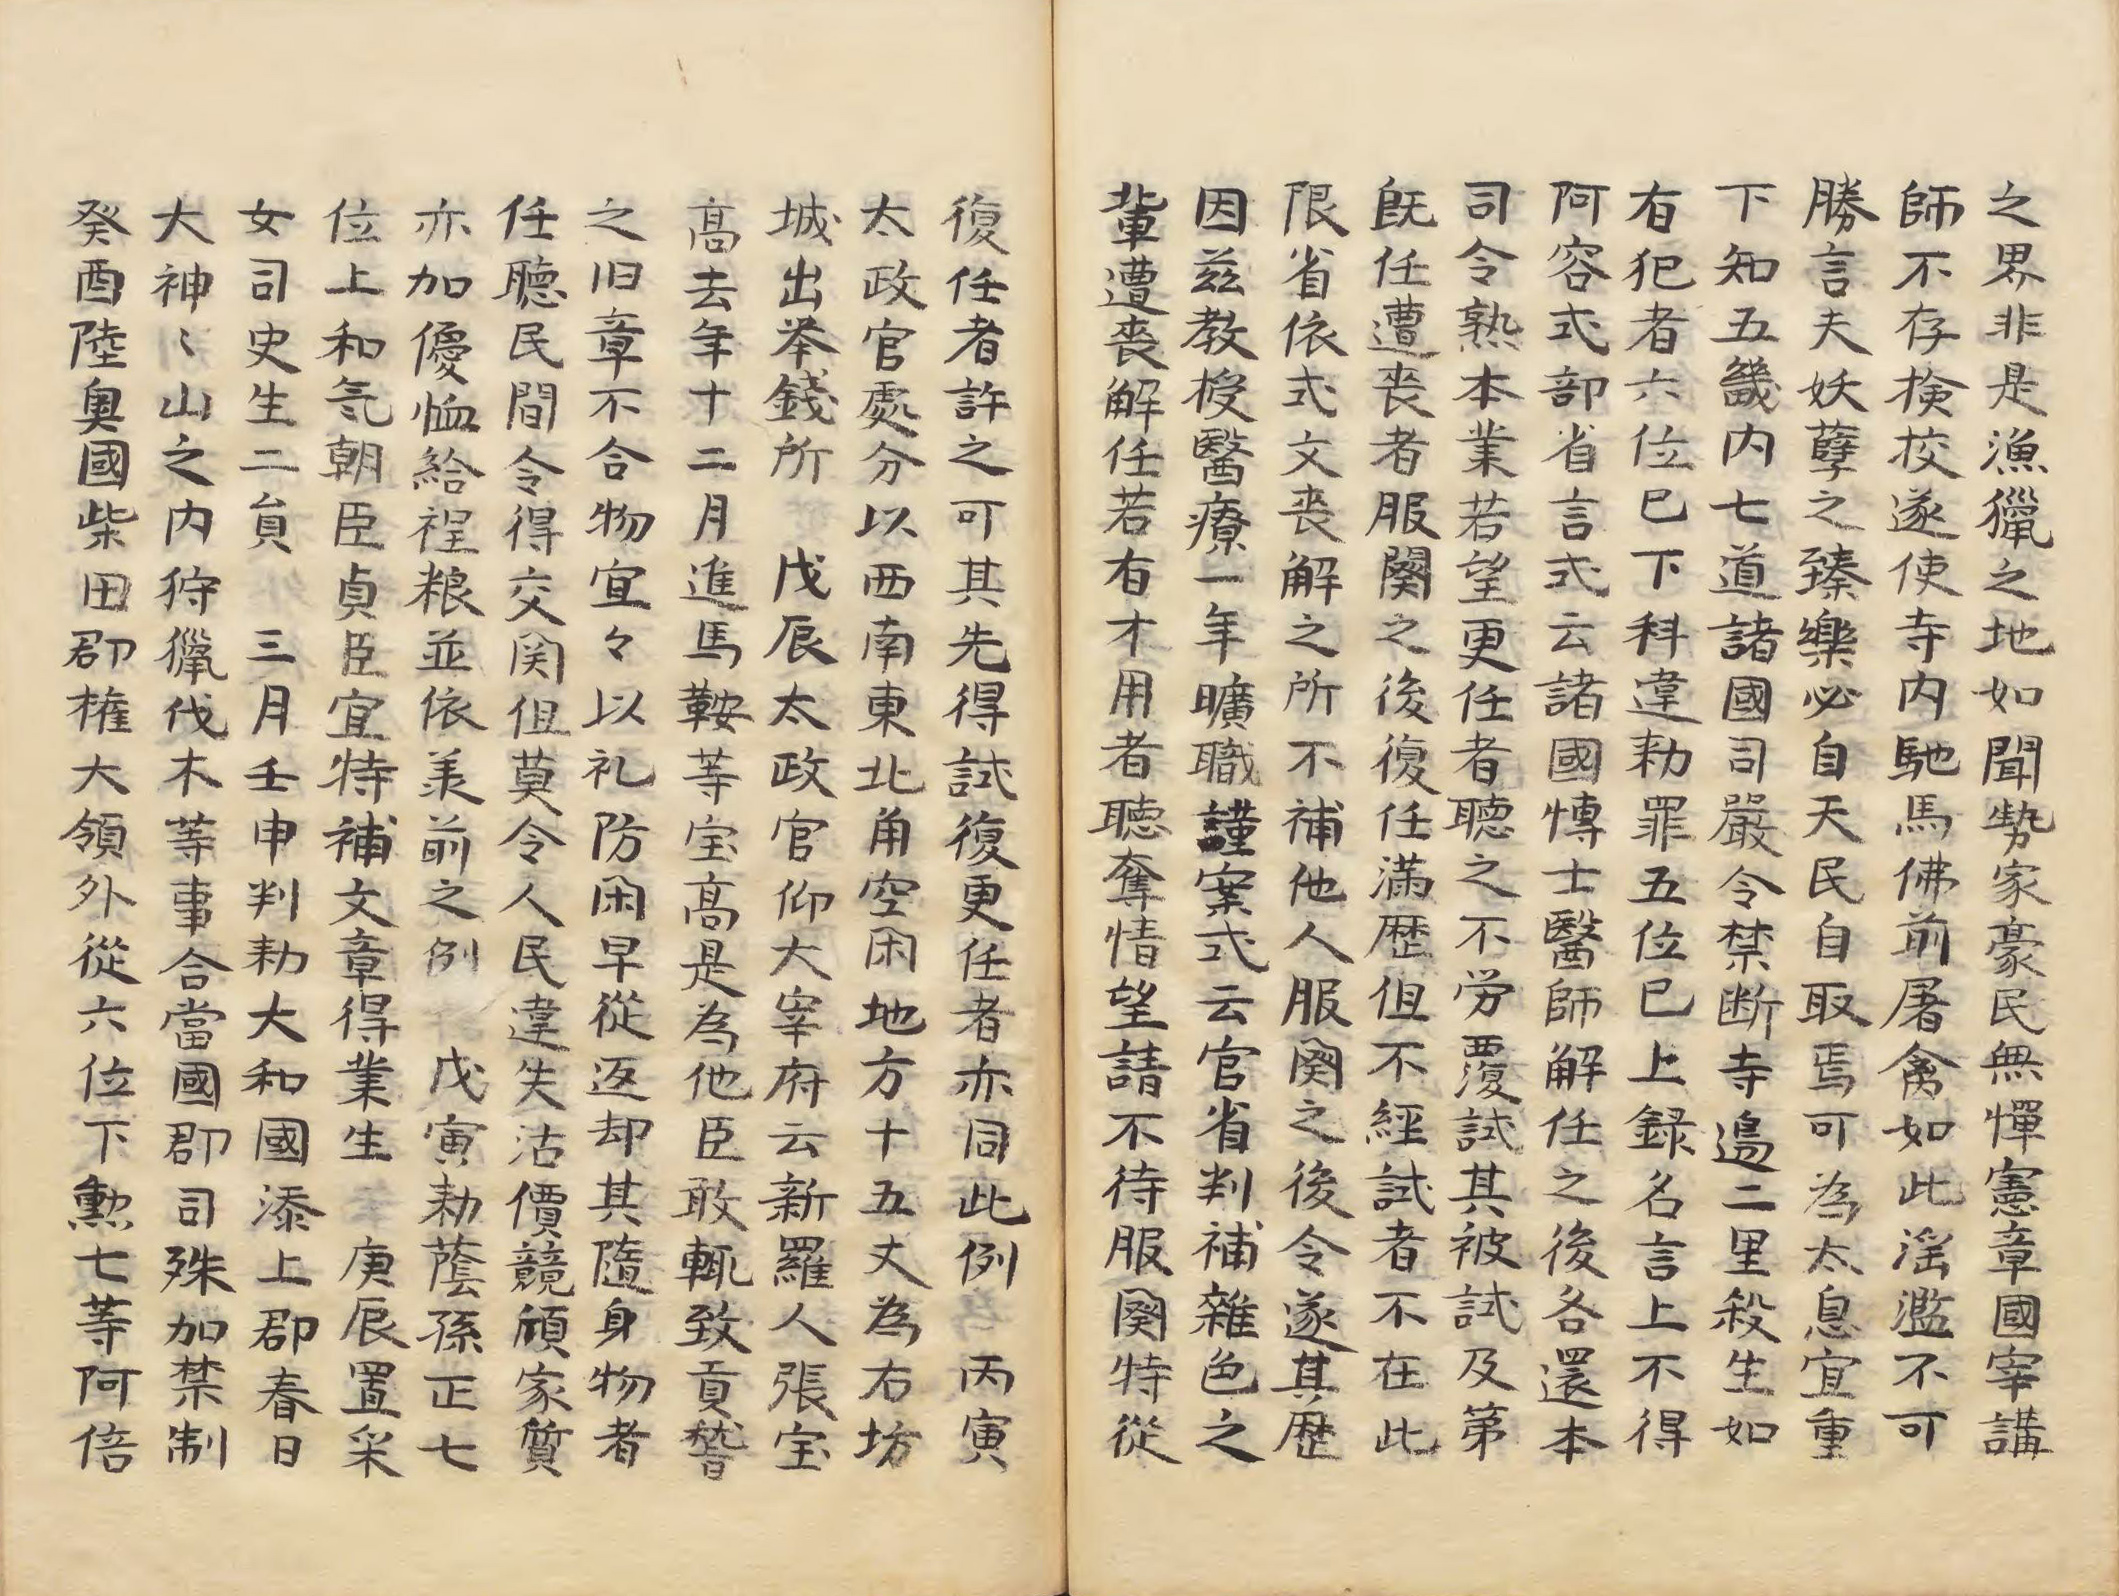 之界非是漁獵之地如聞勢家豪民無憚憲章國宰講
師不存検校遂使寺内馳馬佛前屠禽如此滛濫不可
勝言夫妖孽之臻樂必自天民自取焉可為太息宜重
下知五畿内七道諸國司嚴令禁断寺邉二里殺生如
有犯者六位巳下科違勅罪五位巳上録名言上不得
阿容式部省言式云諸國博士醫師解任之後各還本
司令熟本業若望更任者聽之不労覆試其被試及第
既任遭喪者服闋之後復任満歴但不經試者不在此
限省依式文喪解之所不補他人服闋之後令遂其歴
因兹教授醫療一年曠職謹案式云官省判補雜色之
輩遭喪解任若有才用者聽奪情望請不待服闋特從
復任者許之可其先得試復更任者亦同此例　丙寅
太政官處分以西南東北角空閑地方十五丈為右坊
城出挙錢所　戊辰太政官仰大宰府云新羅人張宝
髙去年十二月進馬鞍等宝髙是為他臣敢輙致貢贊
之旧章不合物宜々以礼防閑早從返却其隨身物者
任聽民間令得交関但莫令人民違失沽價競傾家質
亦加優恤給程粮並依羙前之例　戊寅勅蔭孫正七
位上和気朝臣貞臣宜特補文章得業生　庚辰置采
女司史生二貟　三月壬申判勅大和國添上郡春日
大神〻山之内狩獵伐木等事合當國郡司殊加禁制
癸酉陸奥國柴田郡権大領外從六位下勲七等阿倍